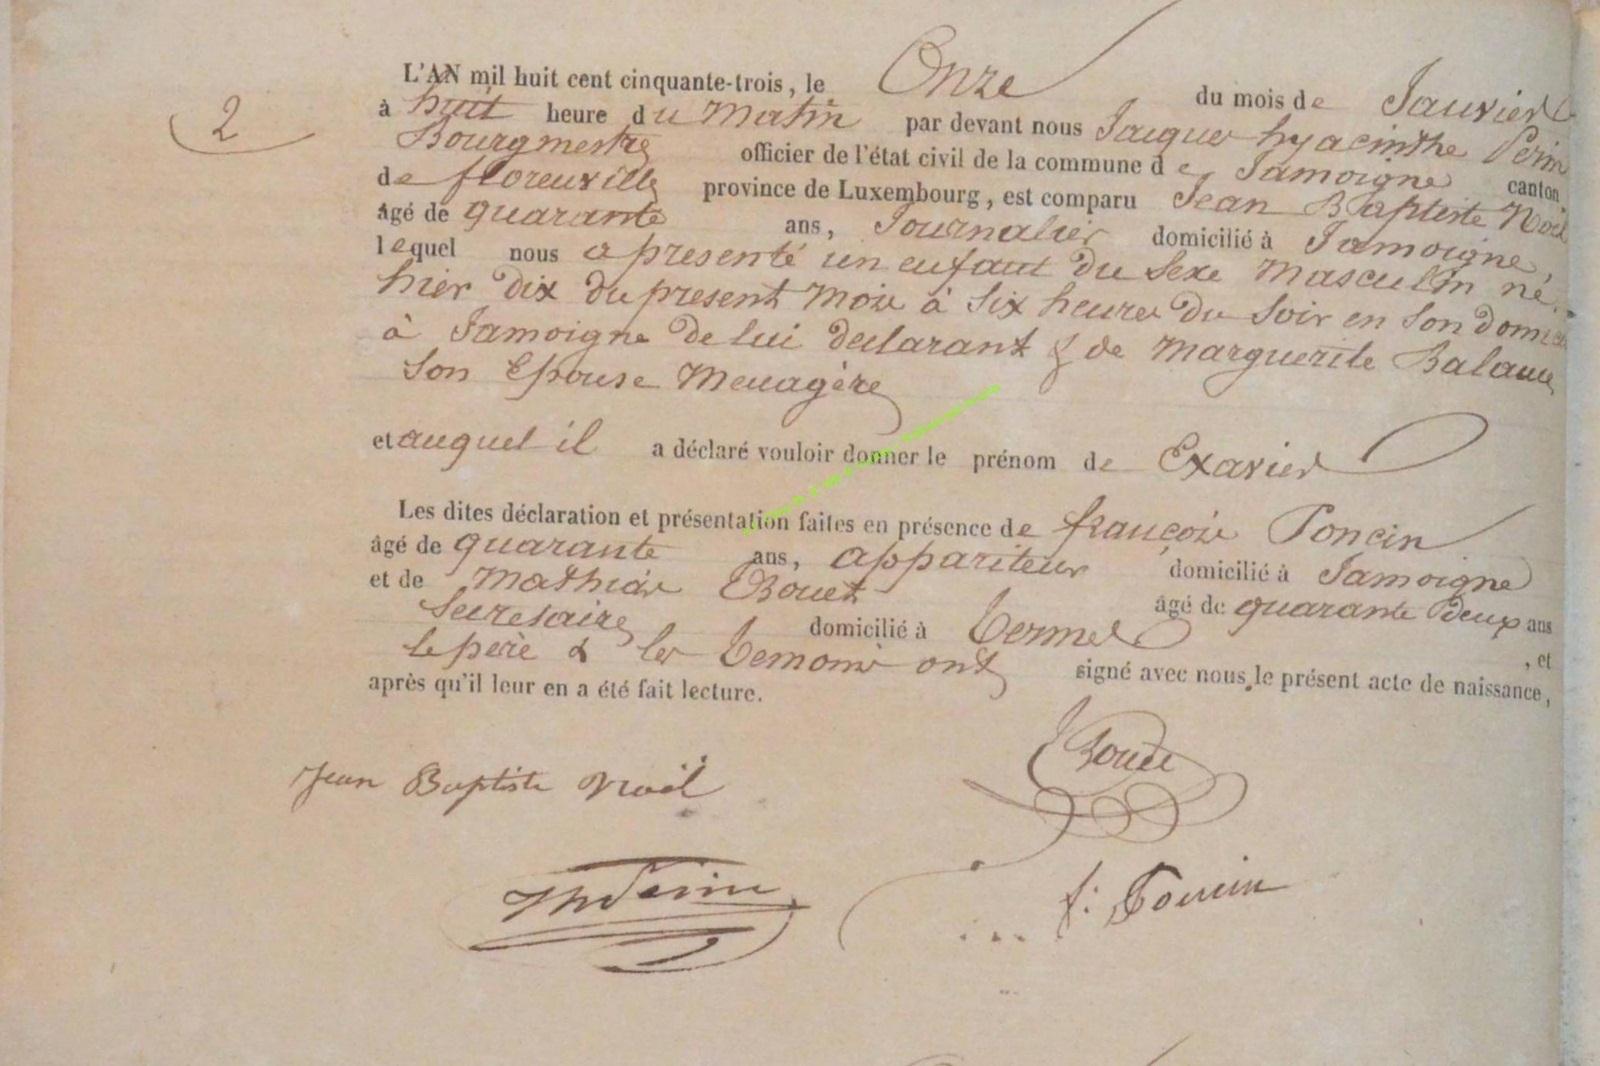 2
L'AN mil huit cent cinquante-trois, le Onze du mois de Janvier
à huit heure du Matin par devant nous Jacques hyacinthe Perin
Bourgmestre officier de l'état civil de la commune de Jamoigne canton
de florenville province de Luxembourg, est comparu Jean Baptiste Noël
âgé de quarante ans, Journalier domicilié à Jamoigne,
lequel nous a presenté un enfant du Sexe Masculin né
hier dix du present Mois à Six heures du Soir en Son
à Jamoigne de lui declarant & de Marguerite
Son Epouse Menagère
et auquel il a déclaré vouloir donner le prénom de Exavier
Les dites déclaration et présentation faites en présence de françois Poncin
âgé de quarante ans, appariteur domicilié à Jamoigne
et de Mathias Bouet âgé de quarante deux ans
Secretaire domicilié à termes , et
le père & les temoins ont signé avec nous le présent acte de naissance,
après qu'il leur en a été fait lecture.
Jean Baptiste Noël
f: Poncin